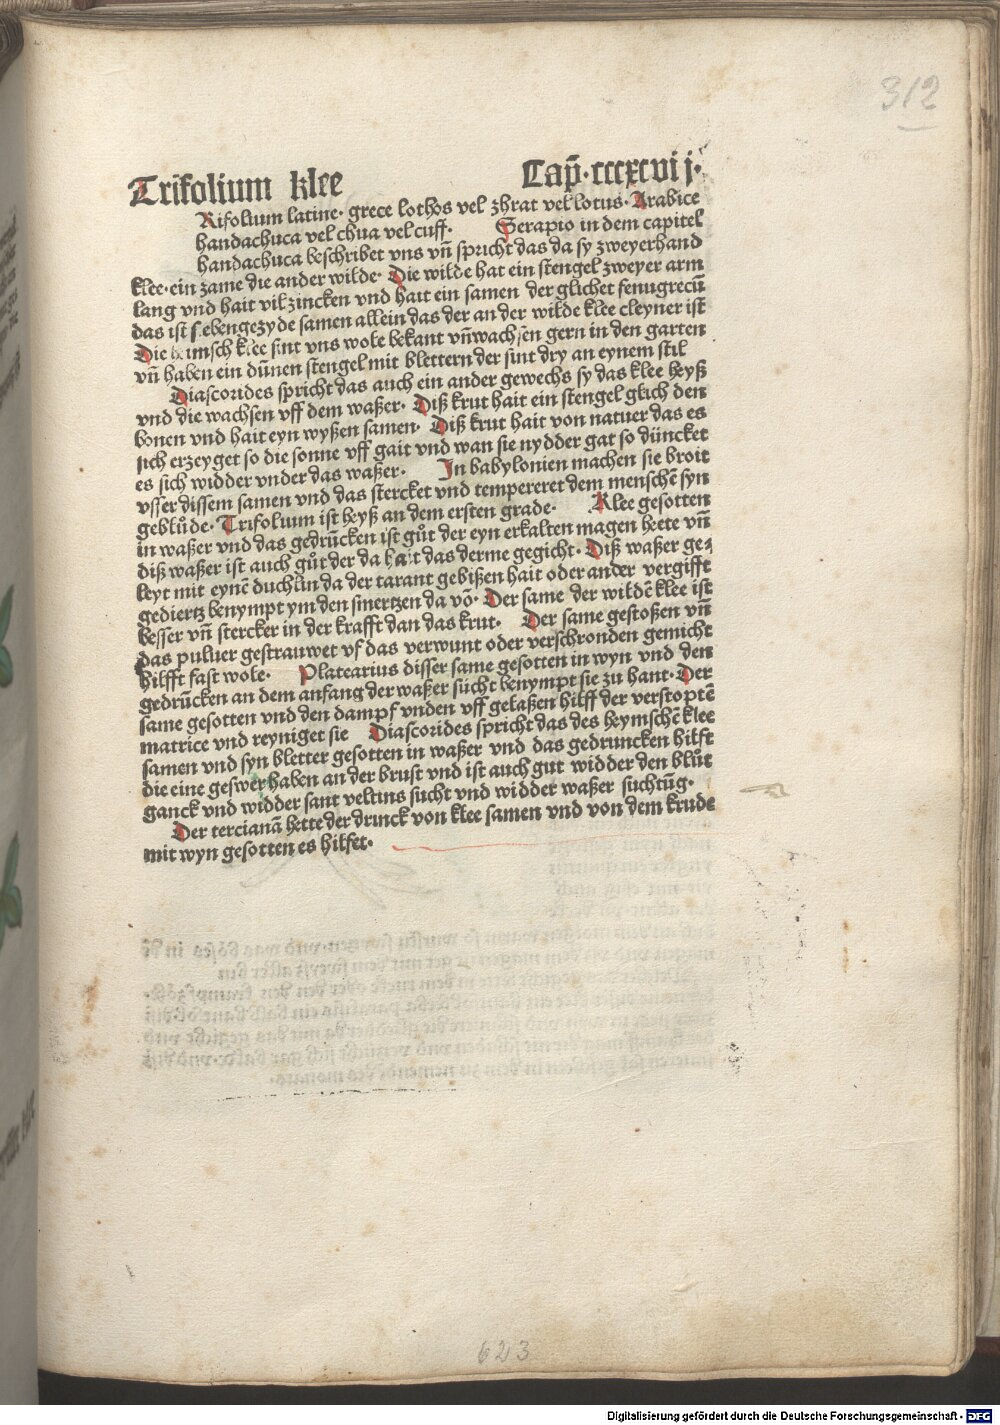 312
Trifolium klee Cap̄·cccxcvij·
Rifolium latine· grece lothos vel zhrat vel lotus· Arabice
handachuca vel chua vel cuff· Serapio in dem capitel
handachuca beschribet vns vn̄ spricht das da sy zweyerhand
klee·ein zame die ander wilde· Die wilde hat ein stengel zweyer arm
lang vnd hait vil zincken vnd hait ein samen der glichet fenugrecū
das ist sebengezyde samen allein das der an der wilde klee cleyner ist
Die heimsch klee sint vns wole bekant vn̄wachsen gern in den garten
vn̄ haben ein dūnen stengel mit blettern der sint dry an eynem stil
Diascorides spricht das auch ein ander gewechs sy das klee heyß
vnd die wachsen vff dem waßer· Diß krut hait ein stengel glich den
bonen vnd hait eyn wyßen samen· Diß krut hait von natuer das es
sich erzeyget so die sonne vff gait vnd wan sie nydder gat so düncket
es sich widder vnder das waßer· In babylonien machen sie broit
vsser dissem samen vnd das stercket vnd tempereret dem menschē syn
geblůde· Trifolium ist heyß an dem ersten grade· Klee gesotten
in waßer vnd das gedrūcken ist gůt der eyn erkalten magen hette vn̄
diß waßer ist auch gůt der da hait das derme gegicht· Diß waßer ge⸗
leyt mit eynē duchlin da der tarant gebißen hait oder ander vergifft
gediertz benympt ym den smertzen da vō· Der same der wildē klee ist
besser vn̄ stercker in der krafft dan das krut· Der same gestoßen vn̄
das puluer gestrauwet vf das verwunt oder verschronden gemicht
hilfft fast wole· Platearius disser same gesotten in wyn vnd den
gedrūcken an dem anfang der waßer sücht benympt sie zu hant· Der
same gesotten vnd den dampf vnden vff gelaßen hilff der verstoptē
matrice vnd reyniget sie Diascorides spricht das des heymschē klee
samen vnd syn bletter gesotten in waßer vnd das gedruncken hilft
die eine geswer haben an der brust vnd ist auch gut widder den blůt
ganck vnd widder sant veltins sucht vnd widder waßer suchtūg·
Der tercianā hette der drinck von klee samen vnd von dem krude
mit wyn gesotten es hilfet·
623
Digitalisierung gefördert durch die Deutsche Forschungsgemeinschaft - DFG